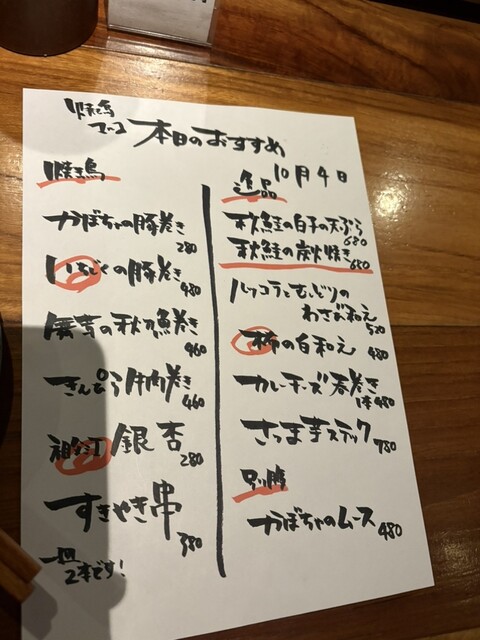 焼鳥
本日のおすすめ
10月4日
焼き鳥
かぼちゃの豚巻き
280
いちじくの豚巻き
480
の秋刀魚巻き
460
きんぴら牛肉巻き
460
銀杏
280
すきやき串
380
一皿
2本です!
逸品
秋鮭の白子の天ぷら
680
秋鮭の炭火焼き
680
ルッコラとむしどりの
わさび和え
520
柿の白和え
480
カレーチーズ春巻き
1本480
さつま芋スティック
780
別腹
かぼちゃのムース
480